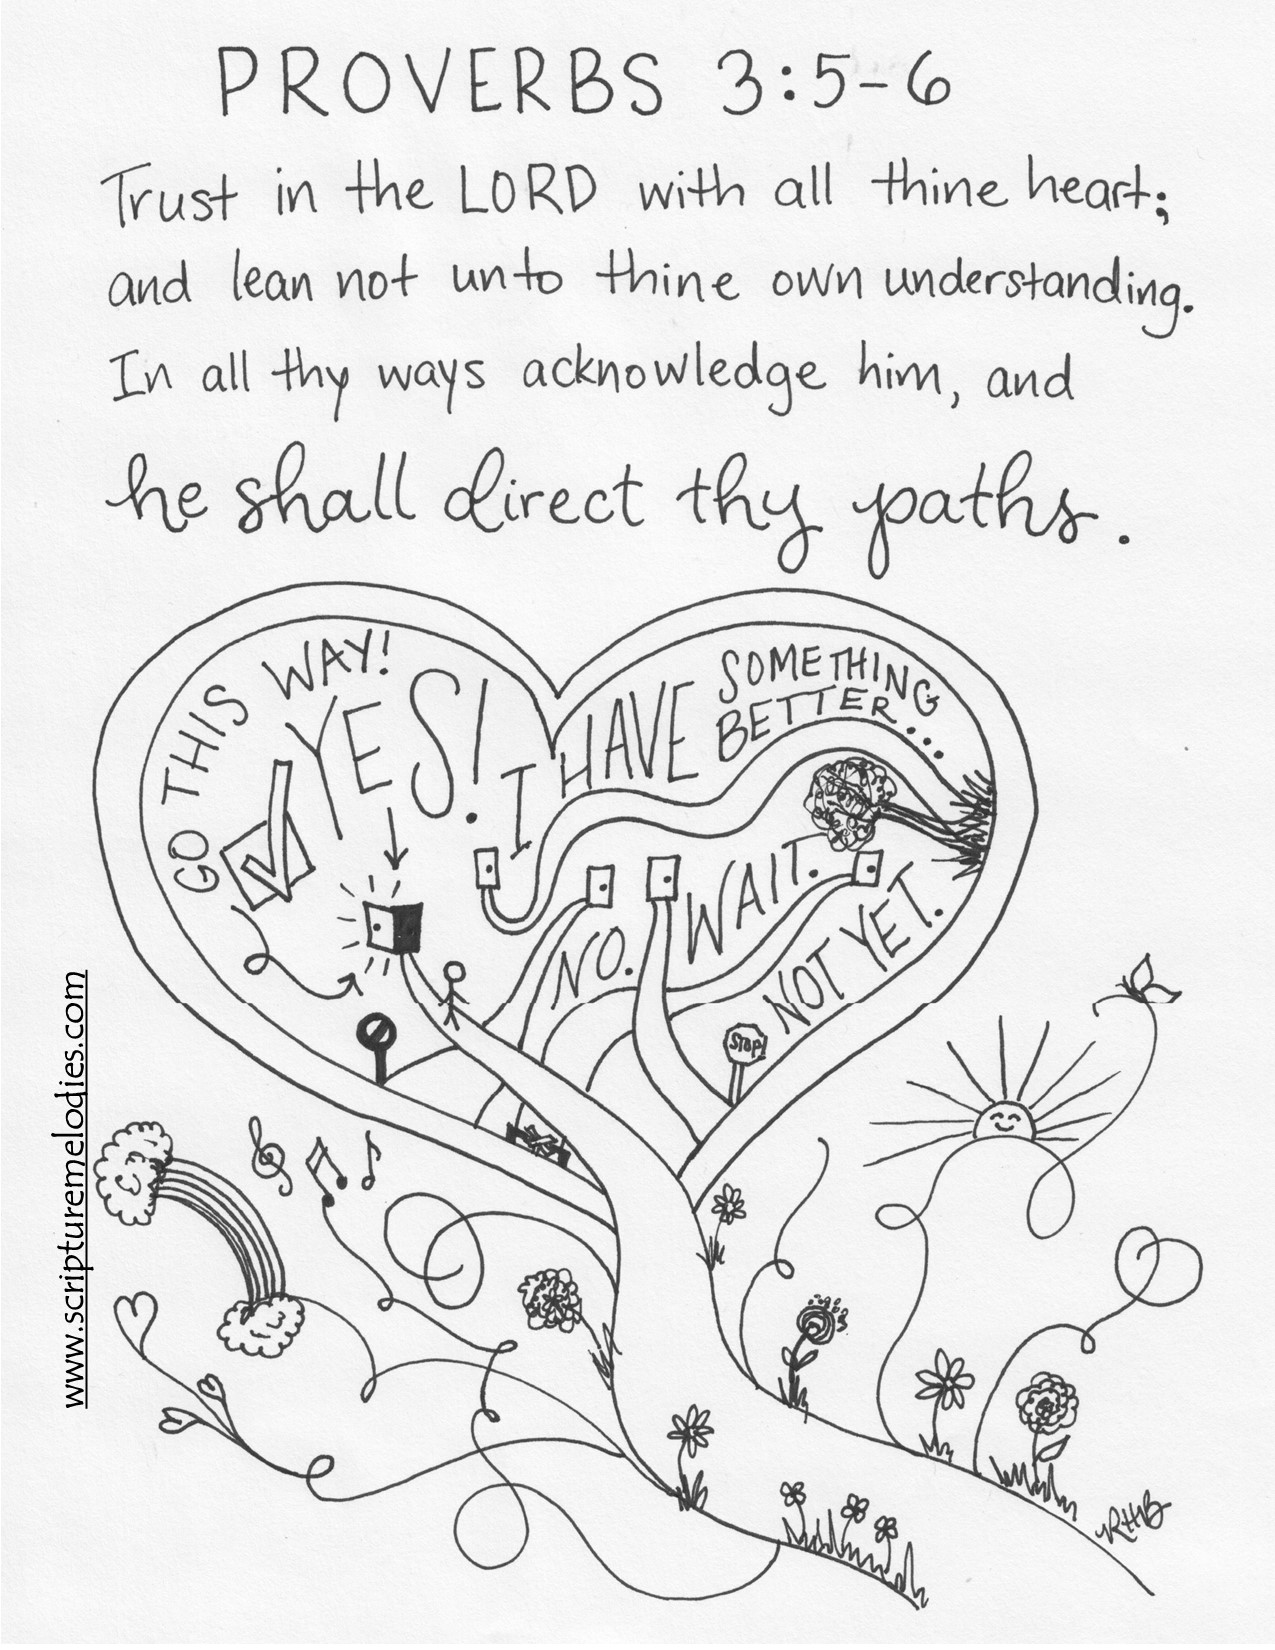 PROVERBS 3:5-6
Trust in the LORD with all thine heart;
and lean not unto thine own understanding.
In all thy ways acknowledge him, and
he shall direct thy paths.
GO THIS WAY!
YES!
I HAVE SOMETHING
BETTER....
NO.
WAIT.
NOT YET.
STOP!
www.scripturemelodies.com
RHB